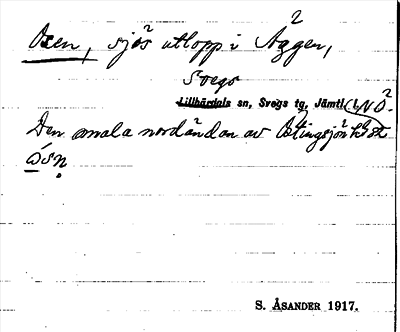 Osen, sjös utlopp i Äggen,
Svegs
Lillhärdals sn, Svegs tg, Jämtl. l. NÖ.
Den smala nordändan av
ósn
S. ÅSANDER 1917.